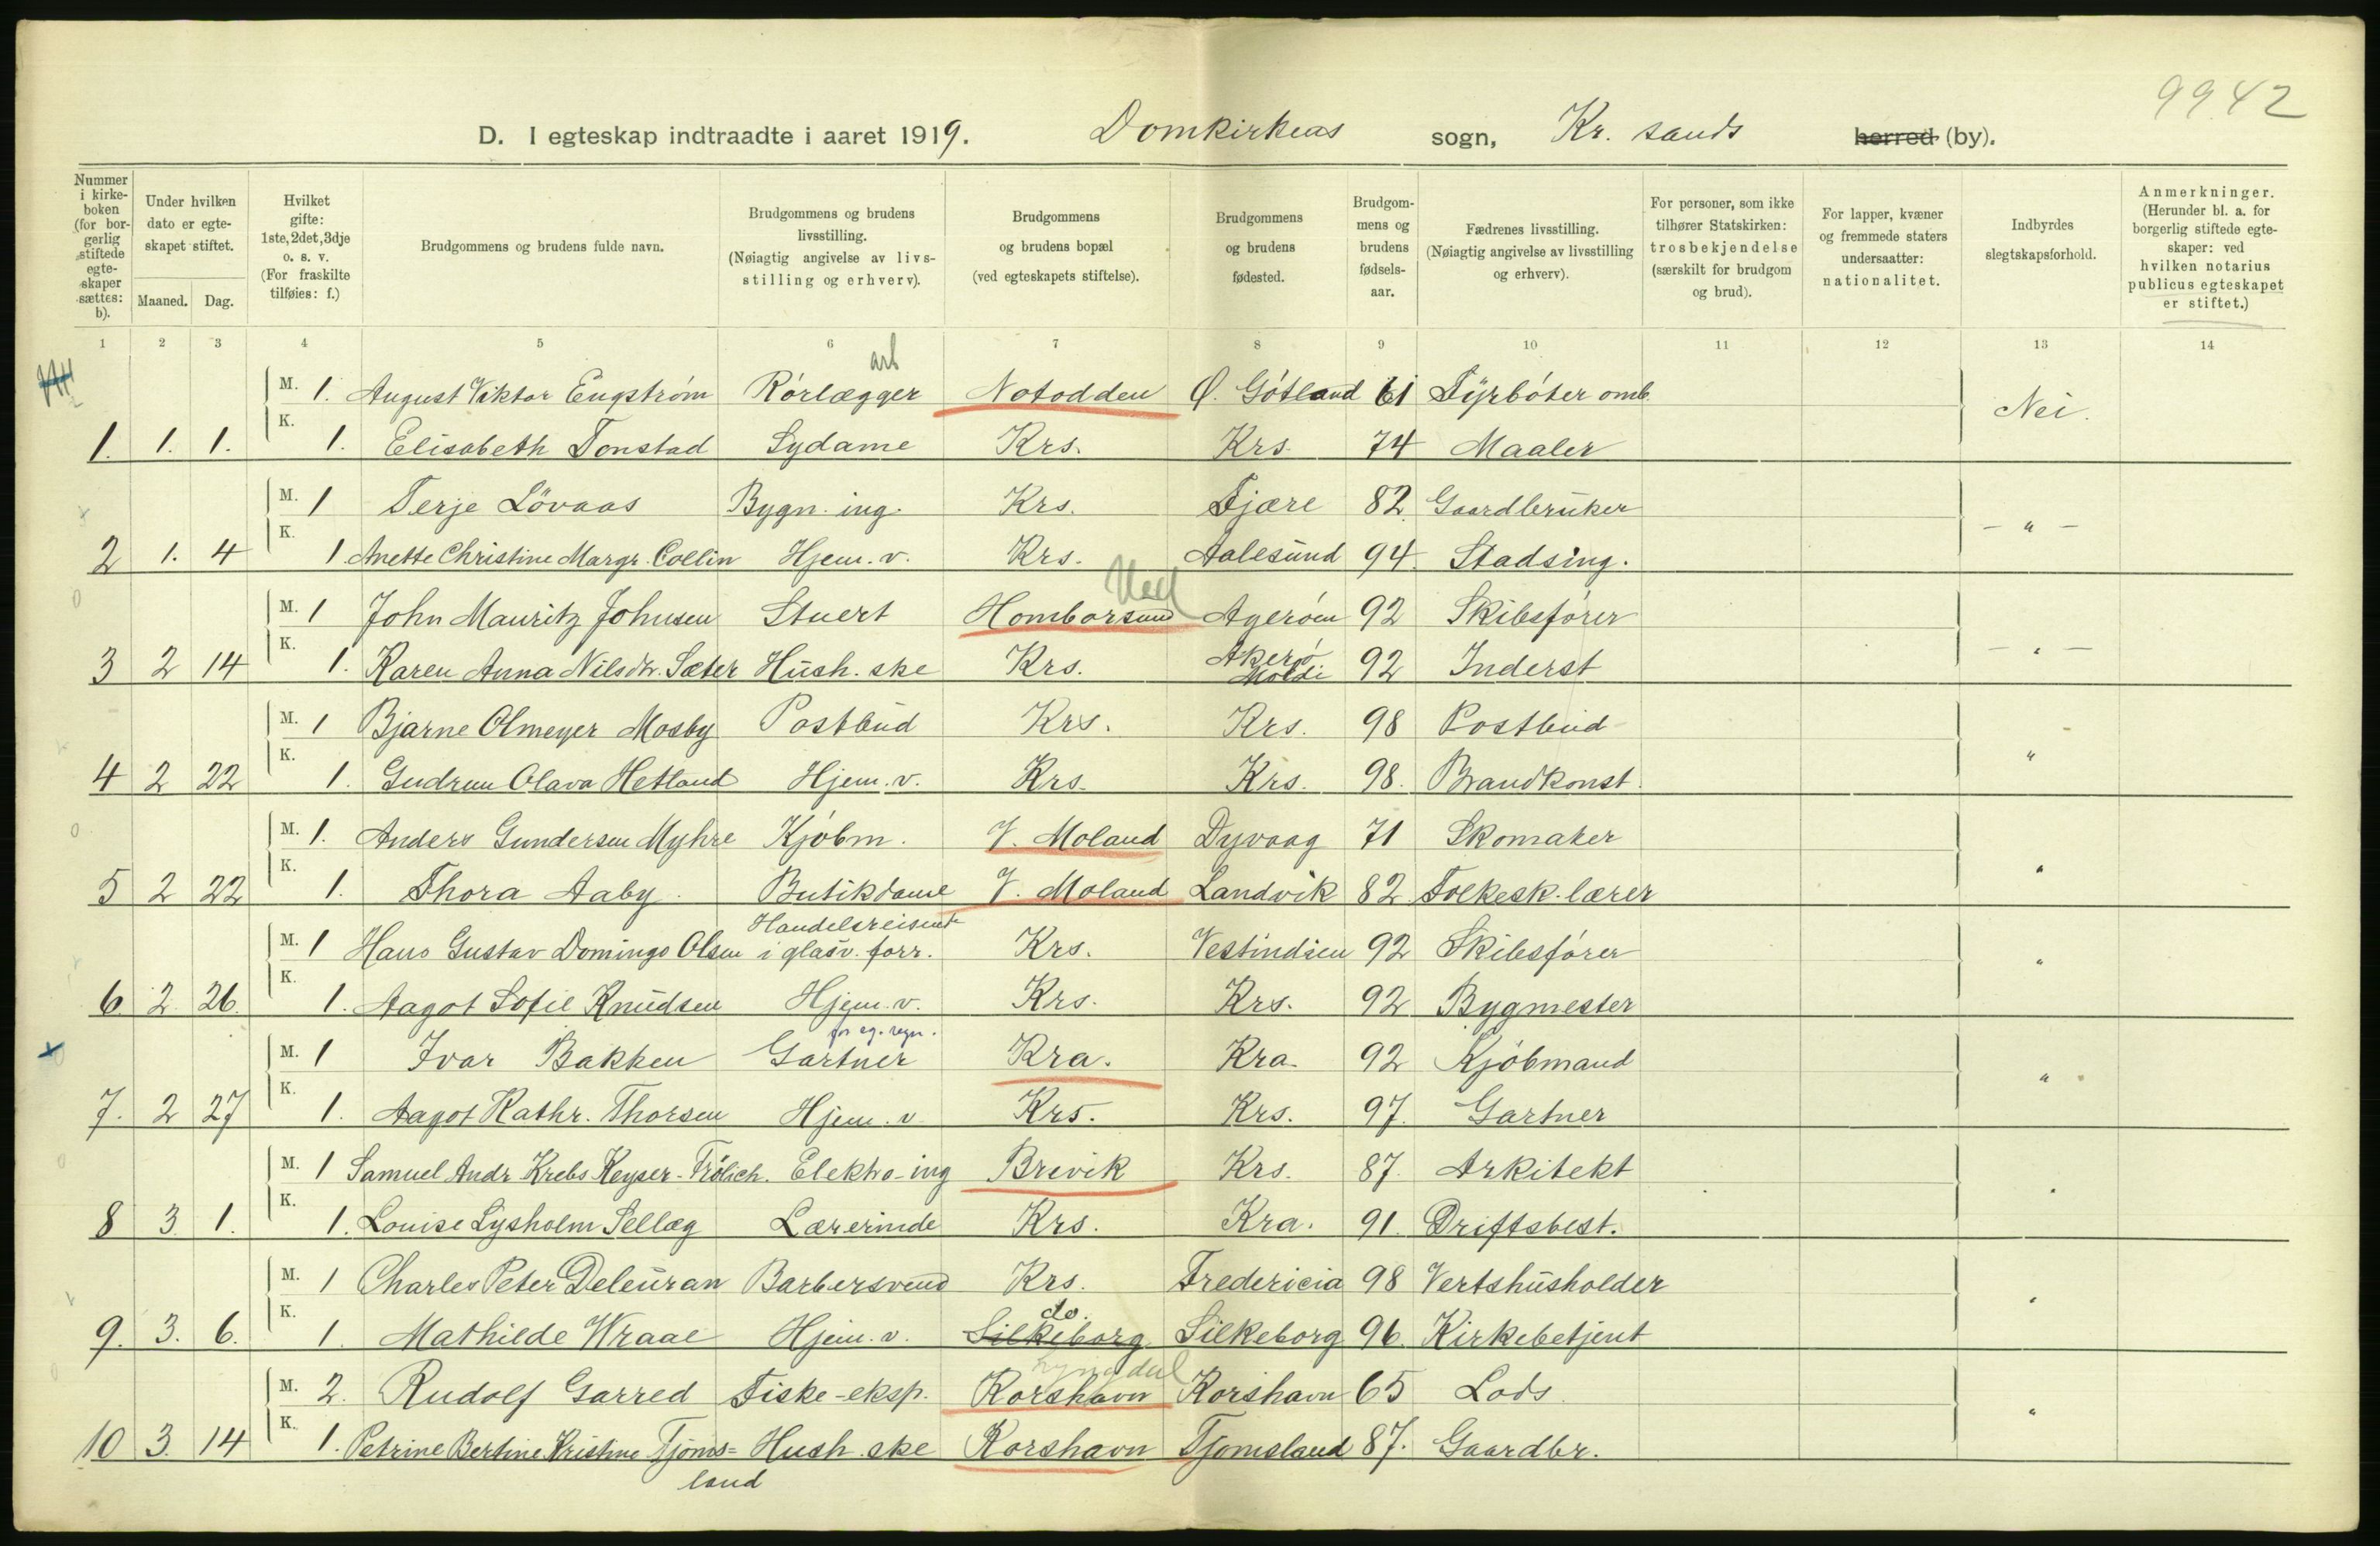 9942
D. I egteskap indtraadte i aaret 1919. Domkirkens sogn, Kr. sands herred (by).
Nummer i kirkeboken (for borgerlig stiftede egteskaper sættes: b).
Under hvilken dato er egteskapet stiftet.
Maaned. Dag.
Hvilket gifte: 1ste, 2det, 3dje o. s. v. (For fraskilte tilføies: f.)
Brudgommens og brudens fulde navn.
Brudgommens og brudens livsstilling. (Nøiagtig angivelse av livsstilling og erhverv).
Brudgommens og brudens bopæl (ved egteskapets stiftelse).
Brudgommens og brudens fødested.
Brudgommens og brudens fødselsaar.
Fædrenes livsstilling. (Nøiagtig angivelse av livsstilling og erhverv).
For personer, som ikke tilhører Statskirken: trosbekjendelse (særskilt for brudgom og brud).
For lapper, kvæner og fremmede staters undersaatter: nationalitet.
Indbyrdes slegtskapsforhold.
Anmerkninger. (Herunder bl. a. for borgerlig stiftede egteskaper: ved hvilken notarius publicus egteskapet er stiftet.)
1 2 3 4 5 6 7 8 9 10 11 12 13 14
arb
M. 1. August Viktor Engstrøm Rørlægger Notodden Ø. Götland 61 Fyrbøter omb. Nei.
1. 1. 1. K. 1. Elisabeth Tonstad Sydame Krs. Krs. 74 Maaler
M. 1 Terje Lövaas Bygn. ing. Krs. Fjære 82 Gaardbruker — " —
2 1. 4 K. 1 Anette Christine Margr. Collin Hjem. v. Krs. Aalesund 94. Stadsing.
M. 1 John Mauritz Johnsen Stuert Homborsund Agerøen 92 Skibsfører — " —
3 2 14 K. 1. Karen Anna Nilsdtr. Sæter Hush. ske Krs. Akerø Molde 92 Inderst
M. 1 Bjarne Olmeyer Mosby Postbud Krs. Krs. 98 Postbud "
4 2 22 K. 1. Gudrun Olava Hetland Hjem. v. Krs. Krs. 98. Brandkonst.
M. 1. Anders Gundersen Myhre Kjøbm. V. Moland Dyvaag 71 Skomaker "
5 2 22 K. 1. Thora Aaby. Butikdame V. Moland Landvik 82 Folkesk. lærer
Handelsreisende
M. 1 Hans Gustav Domingo Olsen i glasv. forr. Krs. Vestindien 92 Skibsfører "
6 2 26. K. 1. Aagot Sofie Knudsen Hjem. v. Krs. Krs. 92 Bygmester
for eg. regn.
M. 1 Ivar Bakken Gartner Kra. Kra. 92 Kjøbmand "
7. 2 27 K. 1. Aagot Kathr. Thorsen Hjem. v Krs. Krs. 97. Gartner
M. 1 Samuel Andr. Krebs Keyser-Frölich. Elektro-ing Brevik Krs. 87. Arkitekt "
8 3 1. K. 1. Louise Lysholm Sellæg Lærerinde Krs. Kra. 91. Driftsbest.
M. 1 Charles Peter Deleuran Barbersvend Krs. Fredericia 98 Vertshusholder "
do.
9. 3. 6. K. 1. Mathilde Wraae Hjem. v. Silkeborg Silkeborg 96. Kirkebetjent
Lyngdal
M. 2. Rudolf Garred Fiske-eksp. Korshavn Korshavn 65 Lods "
10 3. 14 K. 1. Petrine Bertine Kristine Tjøms= Hush. ske Korshavn Tjomsland 87. Gaardbr.
land